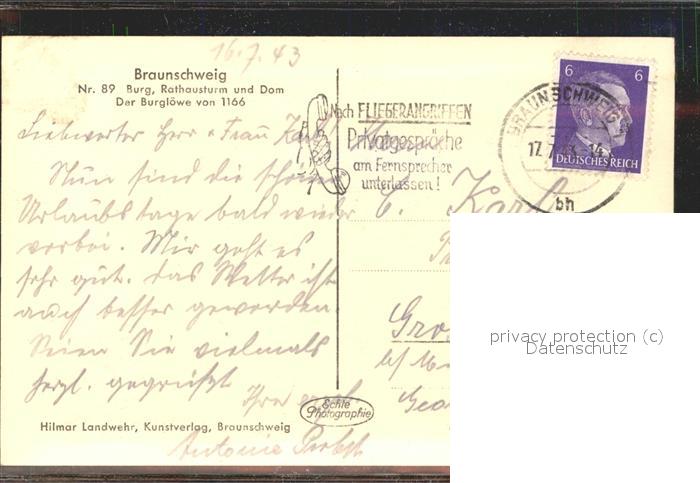 16.7.43
Braunschweig
Nr. 89 Burg, Rathausturm und Dom
Der Burglöwe von 1166
Liebwerter Herr u Frau Karl
Nun sind die schönen
Urlaubstage bald wieder
vorbei. Mir geht es
sehr gut. Das Wetter ist
auch besser geworden.
Seien Sie vielmals
herzl. gegrüßt
Ihre
Antonie
Hilmar Landwehr, Kunstverlag, Braunschweig
Echte
Photographie
Nach FLIEGERANGRIFFEN
Privatgespräche
am Fernsprecher
unterlassen!
BRAUNSCHWEIG
17.7.43
bh
6 6
DEUTSCHES REICH
Karl
privacy protection (c)
Datenschutz